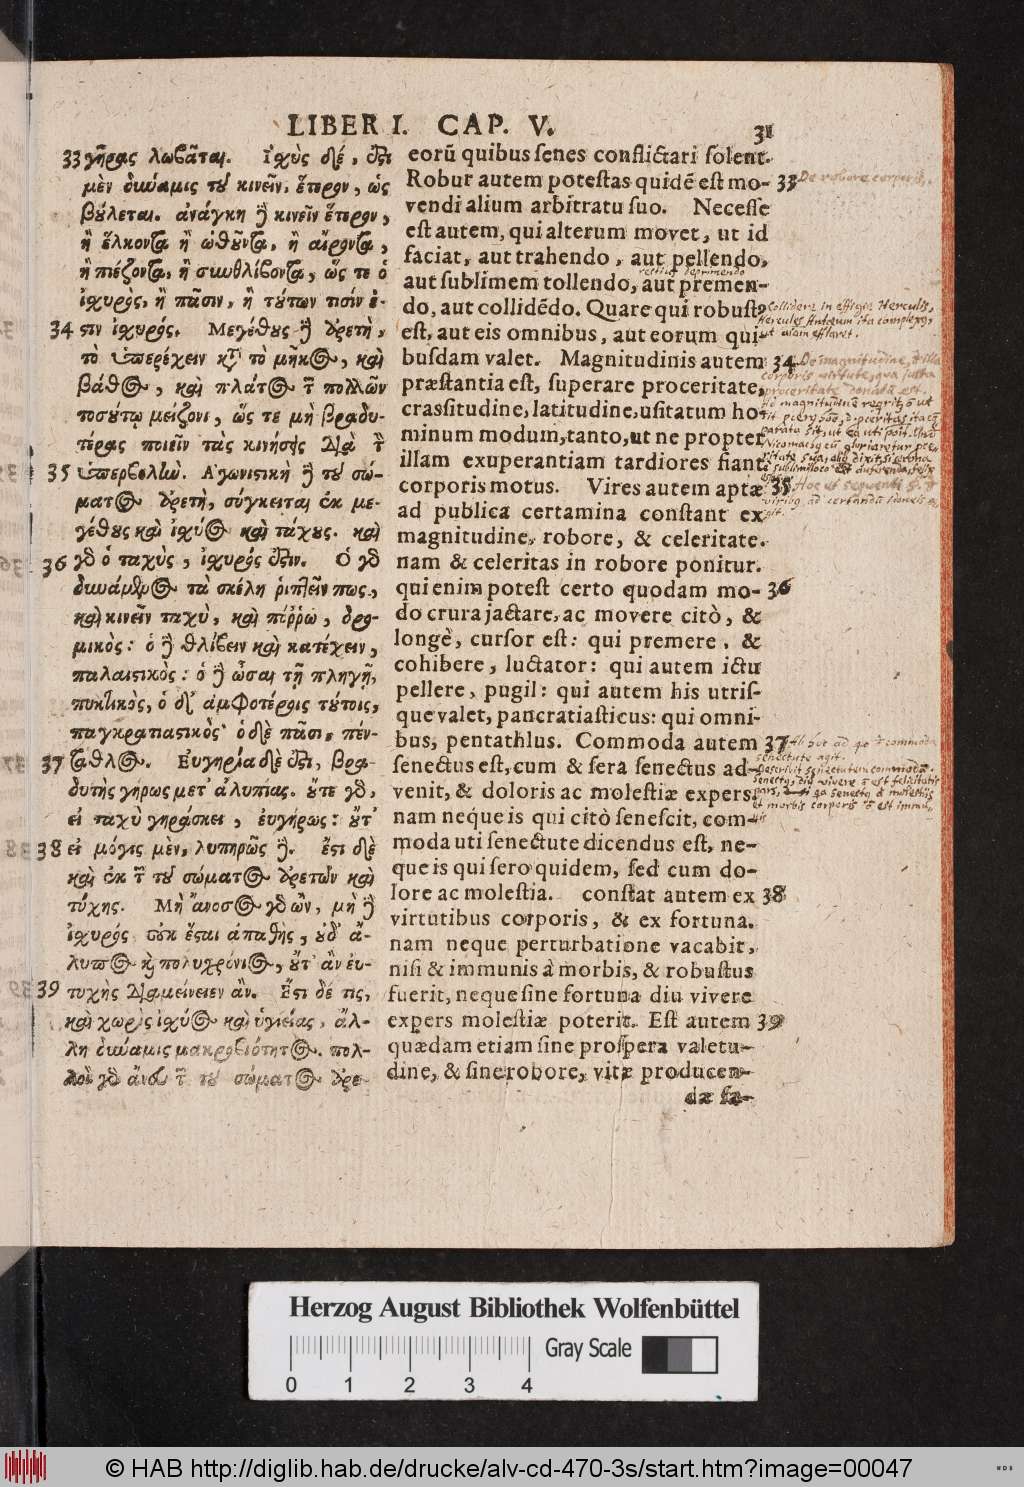 LIBER I. CAP. V. 31
33 γῆρας λωβᾶται. ἰσχὺς δέ, ἐστι
μὲν δύναμις τοῦ κινεῖν, ἕτερον, ὡς
βούλεται. ἀνάγκη ἢ κινεῖν ἕτερον,
ἢ ἕλκοντα ἢ ὠθοῦντα, ἢ αἴροντα,
ἢ πιέζοντα, ἢ συνθλίβοντα, ὥς τε ὁ
ἰσχυρὸς, ἢ πᾶσιν, ἢ τούτων τισίν ἐ-
34 στιν ἰσχυρός. Μεγέθους δὲ ἀρετὴ,
τὸ ὑπερέχειν κατὰ τὸ μῆκος, καὶ
βάθος, καὶ πλάτος τῶν πολλῶν
τοσούτῳ μείζονι, ὥς τε μὴ βραδυ-
τέρας ποιεῖν τὰς κινήσης διὰ τὴν
35 ὑπερβολήν. Αγωνιστικὴ δὲ τοῦ σώ-
ματος ἀρετὴ, σύγκειται ἐκ με-
γέθους καὶ ἰσχύος καὶ τάχους. καὶ
36 γὰρ ὁ ταχὺς, ἰσχυρός ἐστιν. Ὁ γὰρ
δυνάμενος τὰ σκέλη ῥιπτεῖν πως,
καὶ κινεῖν ταχὺ, καὶ πόῤῥω, δρο-
μικὸς: ὁ δὲ θλίβειν καὶ κατέχειν,
παλαιστικὸς: ὁ δὲ ὦσαι τῇ πληγῇ,
πυκτικὸς, ὁ δ' ἀμφοτέροις τούτοις,
παγκρατιαστικὸς ὁ δὲ πᾶσι, πέν-
37 ταθλος. Εὐγηρία δὲ ἐστι, βρα-
δυτὴς γήρως μετ' ἀλυπίας. οὔτε γὰρ,
εἰ ταχὺ γηράσκει, εὐγήρως: οὔτ'
38 εἰ μόγις μὲν, λυπηρῶς δέ. ἔστι δὲ
καὶ ἐκ τῶν τοῦ σώματος ἀρετῶν καὶ
τύχης. Μὴ ἄνοσος γὰρ ὢν, μὴ δὲ
ἰσχυρός οὐκ ἔσται ἀπαθὴς, οὐδ' ἄ-
λυπος καὶ πολυχρόνιος, οὔτ' ἂν εὐ-
39 τυχὴς διαμείνειεν ἂν. Ἔστι δέ τις,
καὶ χωρὶς ἰσχύος καὶ ὑγιείας, ἄλ-
λη δύναμις μακροβιότητος. πολ-
λοὶ γὰρ ἄνευ τῶν τοῦ σώματος ἀρε-
eorū quibus ſenes conflictari ſolent.
Robur autem poteſtas quidē eſt mo- 33
vendi alium arbitratu ſuo. Neceſſe
eſt autem, qui alterum movet, ut id
faciat, aut trahendo, aut pellendo,
rectius deprimendo
aut ſublimem tollendo, aut premen-
do, aut collidēdo. Quare qui robuſtꝰ
eſt, aut eis omnibus, aut eorum qui-
busdam valet. Magnitudinis autem 34
præſtantia eſt, ſuperare proceritate,
craſſitudine, latitudine, uſitatum ho-
minum modum, tanto, ut ne propter
illam exuperantiam tardiores fiant
corporis motus. Vires autem aptæ 35
ad publica certamina conſtant ex
magnitudine, robore, & celeritate.
nam & celeritas in robore ponitur.
qui enim poteſt certo quodam mo- 36
do crura jactare, ac movere citò, &
longè, curſor eſt: qui premere, &
cohibere, luctator: qui autem ictu
pellere, pugil: qui autem his utriſ-
que valet, pancratiaſticus: qui omni-
bus, pentathlus. Commoda autem 37
ſenectus eſt, cum & ſera ſenectus ad-
venit, & doloris ac moleſtiæ expers:
nam neque is qui citò ſeneſcit, com-
moda uti ſenectute dicendus eſt, ne-
que is qui ſero quidem, ſed cum do-
lore ac moleſtia. conſtat autem ex 38
virtutibus corporis, & ex fortuna.
nam neque perturbatione vacabit,
niſi & immunis à morbis, & robuſtus
fuerit, neque ſine fortuna diu vivere
expers moleſtiæ poterit. Eſt autem 39
quædam etiam ſine proſpera valetu-
dine, & ſine robore, vitæ producen-
dæ fa-
De robore corporis.
Collidere in effigie Herculis,
Hercules Antæum ita complexꝰ,
ut alam efflaret.
De magnitudine, &
corporis virtute, qua juxta
proceritate
Hoc et sequenti §.
senectute agit.
Describit senectutem commodā.
et morbis corporis
Herzog August Bibliothek Wolfenbüttel
0 1 2 3 4
Gray Scale
© HAB http://diglib.hab.de/drucke/alv-cd-470-3s/start.htm?image=00047